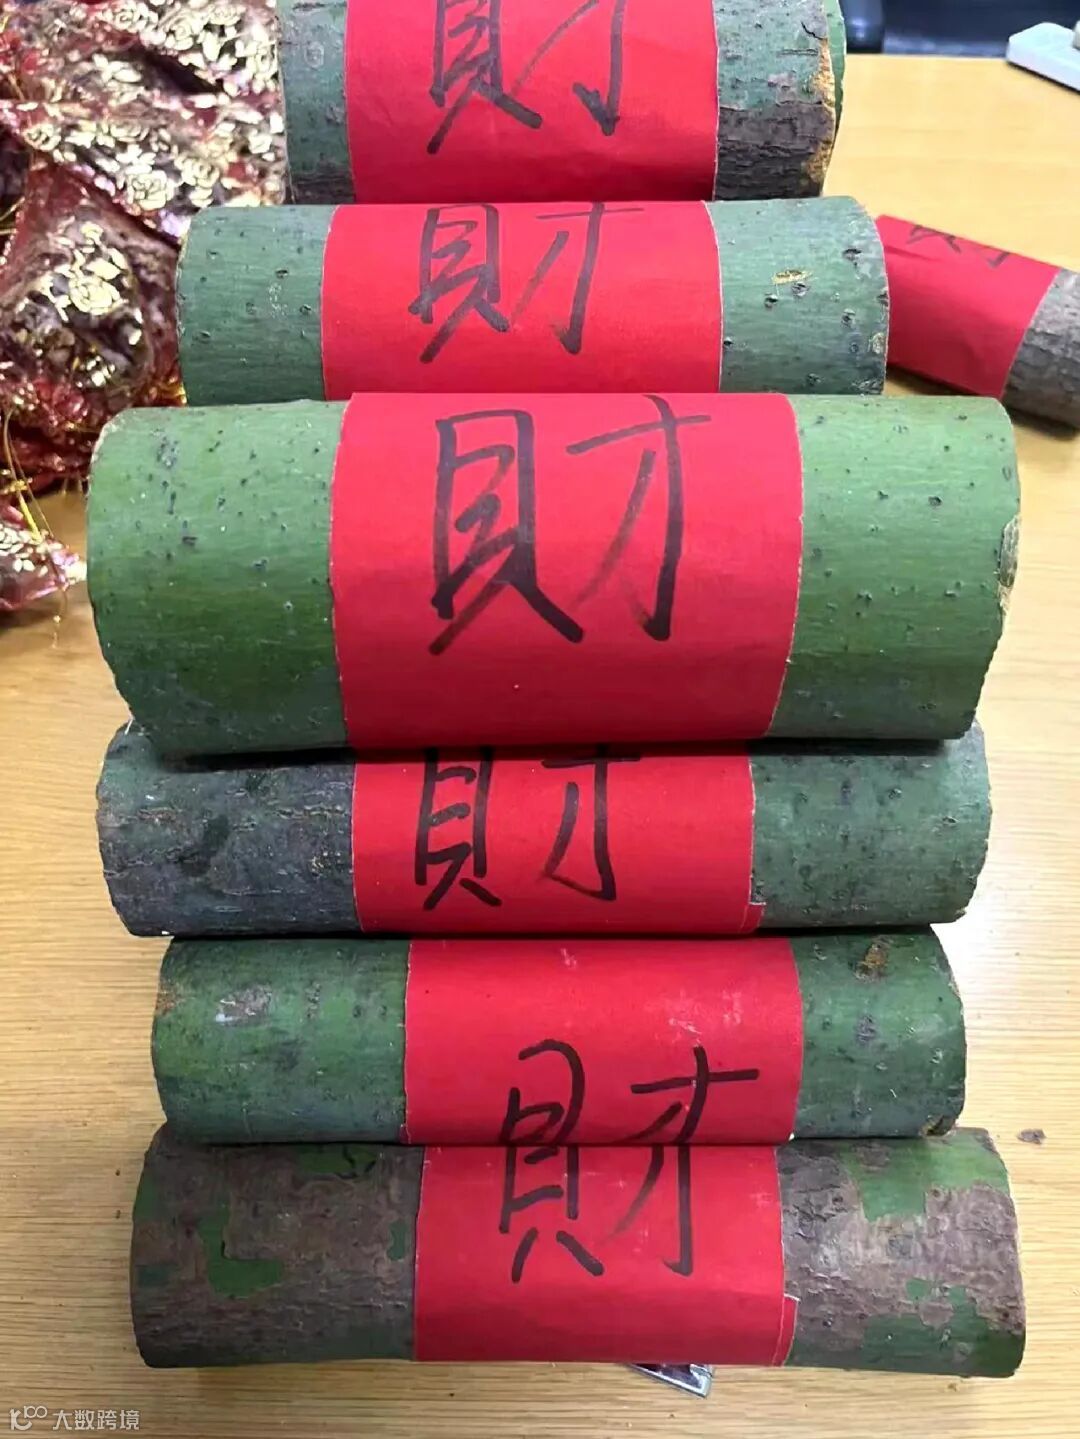 財
財
財
財
財
財
大数跨境